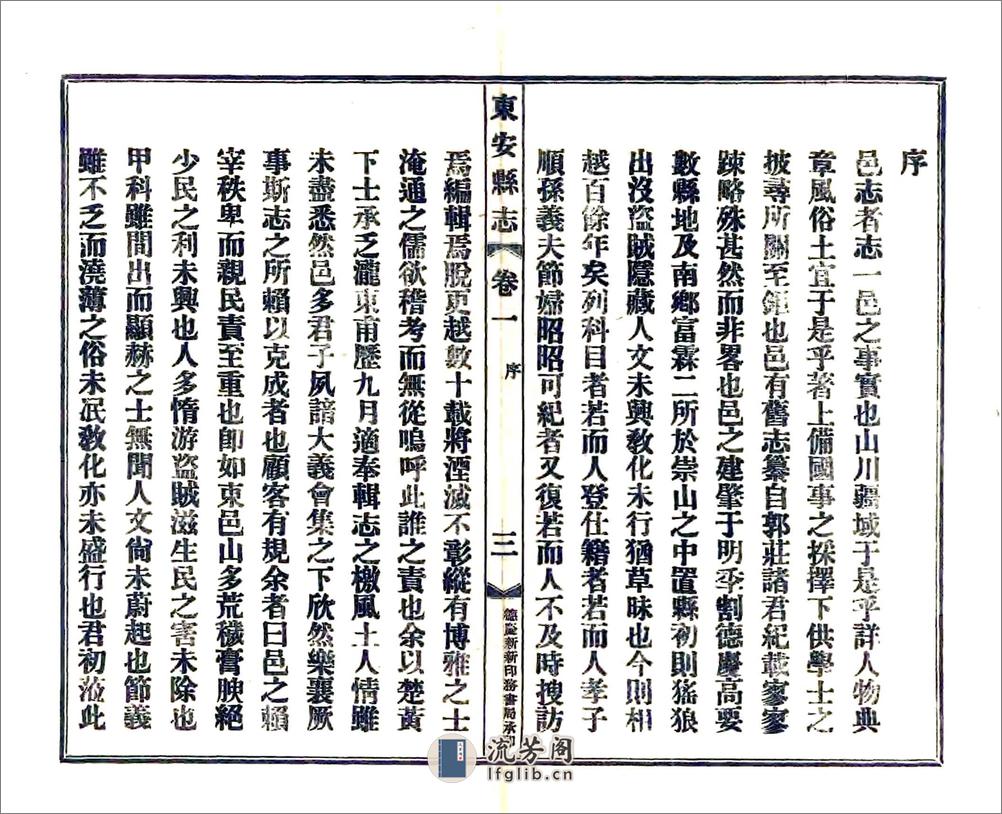 序
邑志者志一邑之事實也山川疆域于是乎詳人物典
章風俗土宜于是乎著上備國事之採擇下供學士之
披尋所關至鉅也邑有舊志纂自郭莊諸君紀載寥寥
踈略殊甚然而非畧也邑之建肇于明季割德慶高要
數縣地及南鄉富霖二所於崇山之中置縣初則猺狼
出沒盜賊隱藏人文未興敎化未行猶草昧也今則相
越百餘年矣列科目者若而人登仕籍者若而人孝子
順孫義夫節婦昭昭可紀者又復若而人不及時搜訪
東安縣志 卷一 序 三 德慶新新印務書局承印
焉編輯焉脫更越數十載將湮滅不彰縱有博雅之士
淹通之儒欲稽考而無從嗚呼此誰之責也余以楚黃
下士承乏瀧東甫歷九月適奉輯志之檄風土人情雖
未盡悉然邑多君子夙諳大義會集之下欣然樂襄厥
事斯志之所賴以克成者也顧客有規余者曰邑之賴
宰秩卑而親民責至重也卽如東邑山多荒穢膏腴絕
少民之利未興也人多惰游盜賊滋生民之害未除也
甲科雖間出而顯赫之士無聞人文尙未蔚起也節義
雖不乏而澆薄之俗未泯敎化亦未盛行也君初涖此
流芳阁
lfglib.cn